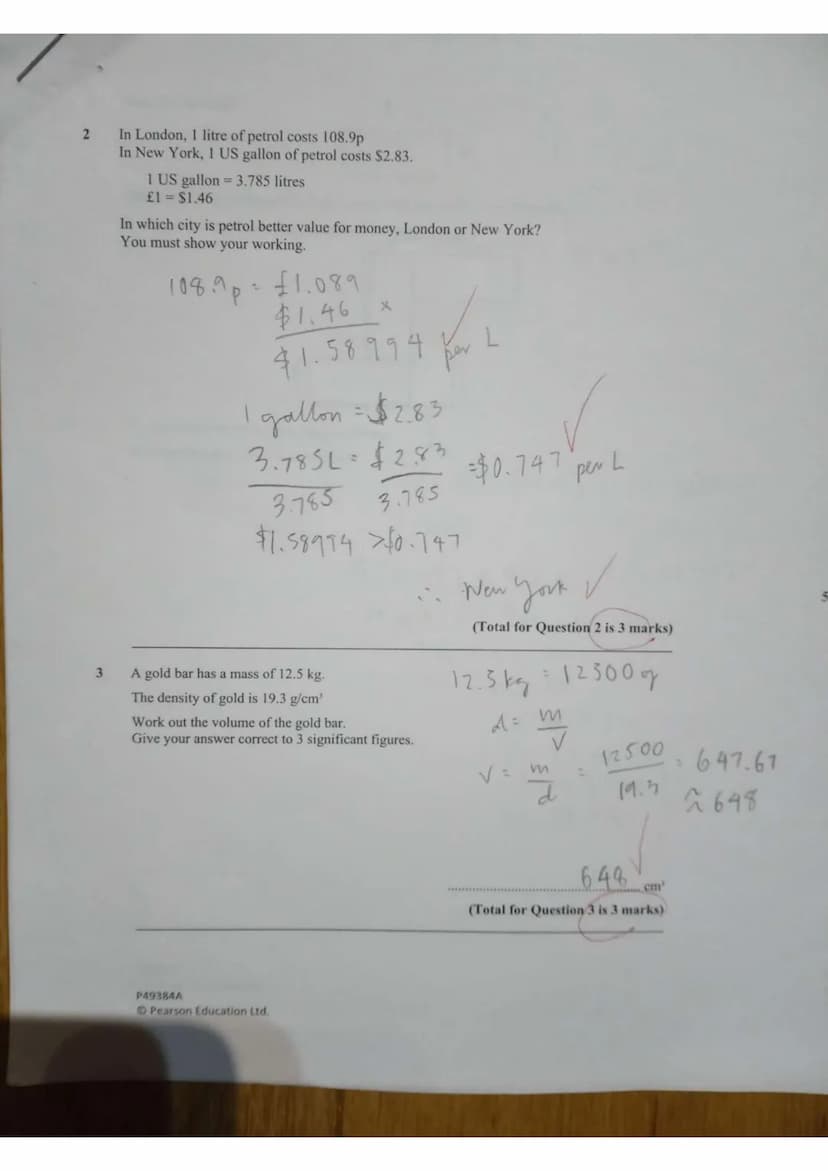 2 In London, 1 litre of petrol costs 108.9p
In New York, 1 US gallon of petrol costs $2.83.
1 US gallon = 3.785 litres
£1 = $1.46
In which city is petrol better value for money, London or New York?
You must show your working.
108.9p = £1.089
$1.46 ×
$1.58994 per L
1 gallon = $2.83
3.785L = $2.83 = $0.747 per L
3.785 3.785
$1.58994 > $0.747
∴ New York
(Total for Question 2 is 3 marks)
3 A gold bar has a mass of 12.5 kg.
The density of gold is 19.3 g/cm³
Work out the volume of the gold bar.
Give your answer correct to 3 significant figures.
12.5 kg = 12500g
d = m
V
V = m = 12500 = 647.67
d 19.3 ≈ 648
648 cm³
(Total for Question 3 is 3 marks)
P49384A
© Pearson Education Ltd.
5